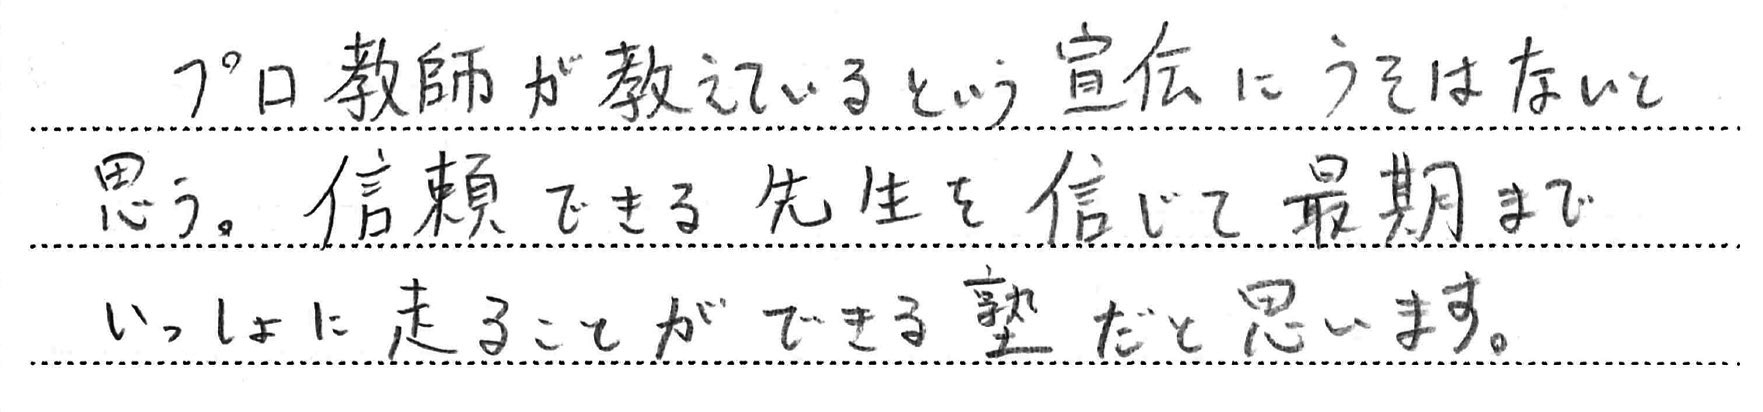 プロ教師が教えているという宣伝にうそはないと
思う。信頼できる先生を信じて最期まで
いっしょに走ることができる塾だと思います。